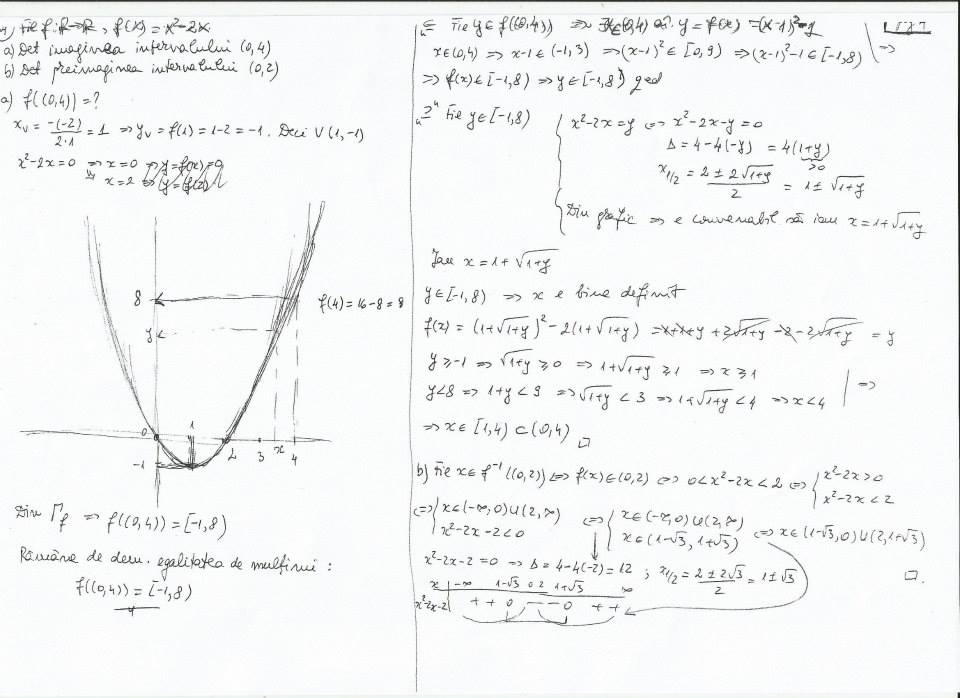 Fie f: R→R, f(x) = x²-2x
a) Det imaginea intervalului (0,4)
b) Det preimaginea intervalului (0,2)
a) f((0,4)) = ?
x_V = -(-2)/2·1 = 1 ⇒ y_V = f(1) = 1-2 = -1. Deci V(1,-1)
x²-2x=0 ⇒ x=0 ⇒ y=f(x)=0
x=2 ⇒ y=f(2)
8
f(4) = 16-8 = 8
y
0
1
2
3
x
4
-1
Din Γf ⇒ f((0,4)) = [-1,8)
Rămâne de dem. egalitatea de mulțimi:
f((0,4)) = [-1,8)
"⊆" Fie y ∈ f((0,4)) ⇒ ∃x∈(0,4) aî. y = f(x) = (x-1)²-1
x∈(0,4) ⇒ x-1 ∈ (-1,3) ⇒ (x-1)² ∈ [0,9) ⇒ (x-1)²-1 ∈ [-1,8) | ⇒
⇒ f(x) ∈ [-1,8) ⇒ y ∈ [-1,8) qed
"⊇" Fie y ∈ [-1,8)
x²-2x=y ⇔ x²-2x-y=0
Δ = 4-4(-y) = 4(1+y)
≥0
x1/2 = (2 ± 2√1+y)/2 = 1 ± √1+y
Din grafic ⇒ e convenabil să iau x = 1+√1+y
Iau x = 1+√1+y
y ∈ [-1,8) ⇒ x e bine definit
f(x) = (1+√1+y)² - 2(1+√1+y) = 1+1+y+2√1+y -2-2√1+y = y
y ≥ -1 ⇒ √1+y ≥ 0 ⇒ 1+√1+y ≥ 1 ⇒ x ≥ 1
y<8 ⇒ 1+y<9 ⇒ √1+y < 3 ⇒ 1+√1+y < 4 ⇒ x<4 | ⇒
⇒ x ∈ [1,4) ⊂ (0,4) □
b) Fie x ∈ f⁻¹((0,2)) ⇔ f(x) ∈ (0,2) ⇔ 0 < x²-2x < 2 ⇔ { x²-2x>0
x²-2x<2
⇔ { x∈(-∞,0)∪(2,∞) ⇔ { x∈(-∞,0)∪(2,∞) ⇔ x∈(1-√3,0)∪(2,1+√3)
x²-2x-2<0 x∈(1-√3, 1+√3)
x²-2x-2=0 ⇒ Δ = 4-4(-2) = 12 ; x1/2 = (2 ± 2√3)/2 = 1±√3 □.
x | -∞ 1-√3 0 2 1+√3 ∞
x²-2x-2 | + + 0 - - - 0 + +